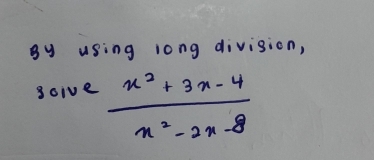 By using long division,
solve x² + 3x - 4
x² - 2x - 8